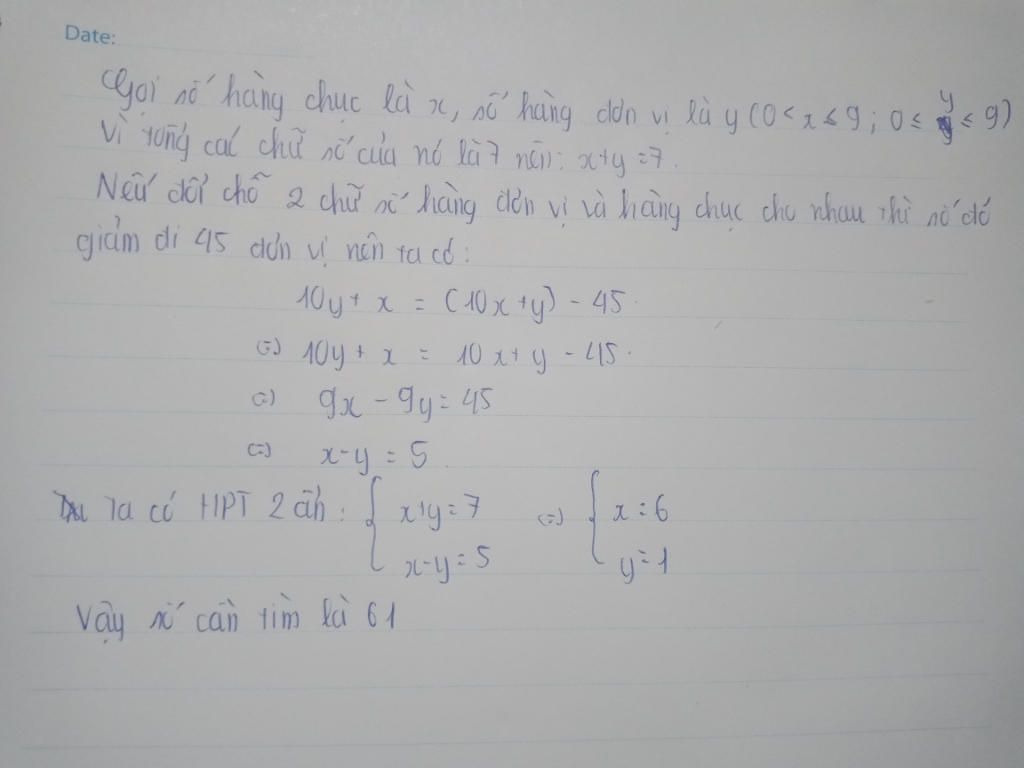 Date:
Gọi số hàng chục là x, số hàng đơn vị là y (0 < x ≤ 9; 0 ≤ y ≤ 9)
Vì tổng các chữ số của nó là 7 nên: x+y=7.
Nếu đổi chỗ 2 chữ số hàng đơn vị và hàng chục cho nhau thì số đó
giảm đi 45 đơn vị nên ta có:
10y + x = (10x+y) - 45.
(=) 10y + x = 10x + y - 45.
(=) 9x - 9y = 45
(=) x-y = 5.
Ta có HPT 2 ẩn: { x+y=7 (=) { x=6
x-y=5 y=1
Vậy số cần tìm là 61